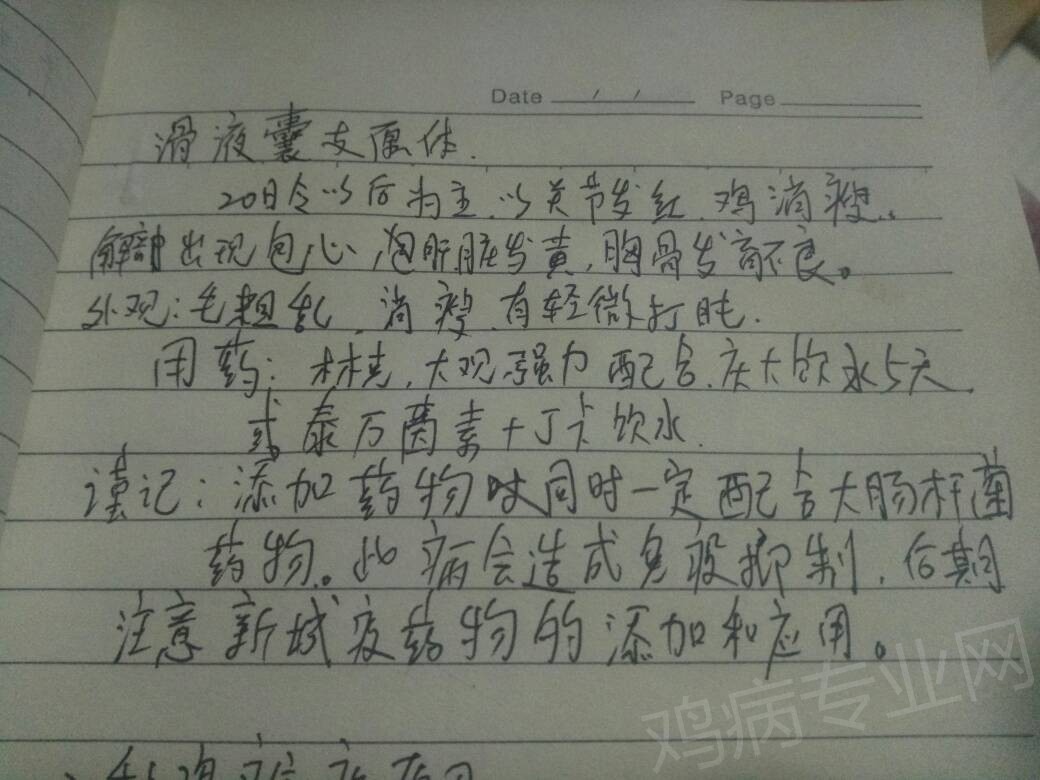 Date / / Page
滑液囊支原体.
20日令以后为主.以关节发红.鸡消瘦..
解剖出现包心,包肝.脏发黄,胸骨发育不良。
外观:毛粗乱.消瘦.有轻微打盹.
用药:林克.大观强力配合.庆大饮水5天.
或泰万菌素+丁卡饮水.
谨记:添加药物时同时一定配合大肠杆菌
药物。此病会造成免疫抑制.后期
注意新城疫药物的添加和应用。
鸡病专业网